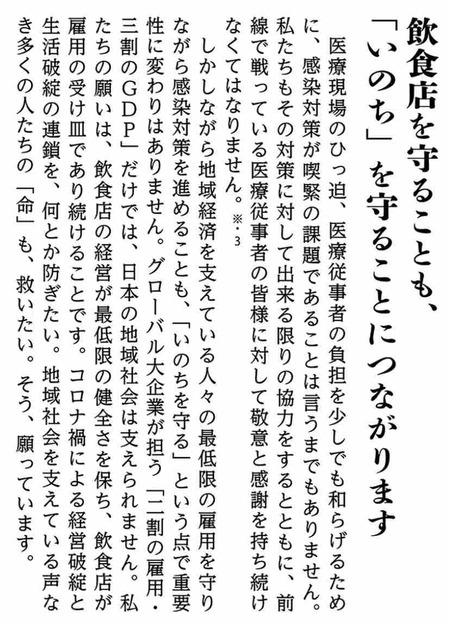 飲食店を守ることも、
「いのち」を守ることにつながります
医療現場のひっ迫、医療従事者の負担を少しでも和らげるため
に、感染対策が喫緊の課題であることは言うまでもありません。
私たちもその対策に対して出来る限りの協力をするとともに、前
線で戦っている医療従事者の皆様に対して敬意と感謝を持ち続け
なくてはなりません。※・3
しかしながら地域経済を支えている人々の最低限の雇用を守り
ながら感染対策を進めることも、「いのちを守る」という点で重要
性に変わりはありません。グローバル大企業が担う「二割の雇用・
三割のGDP」だけでは、日本の地域社会は支えられません。私
たちの願いは、飲食店の経営が最低限の健全さを保ち、飲食店が
雇用の受け皿であり続けることです。コロナ禍による経営破綻と
生活破綻の連鎖を、何とか防ぎたい。地域社会を支えている声な
き多くの人たちの「命」も、救いたい。そう、願っています。